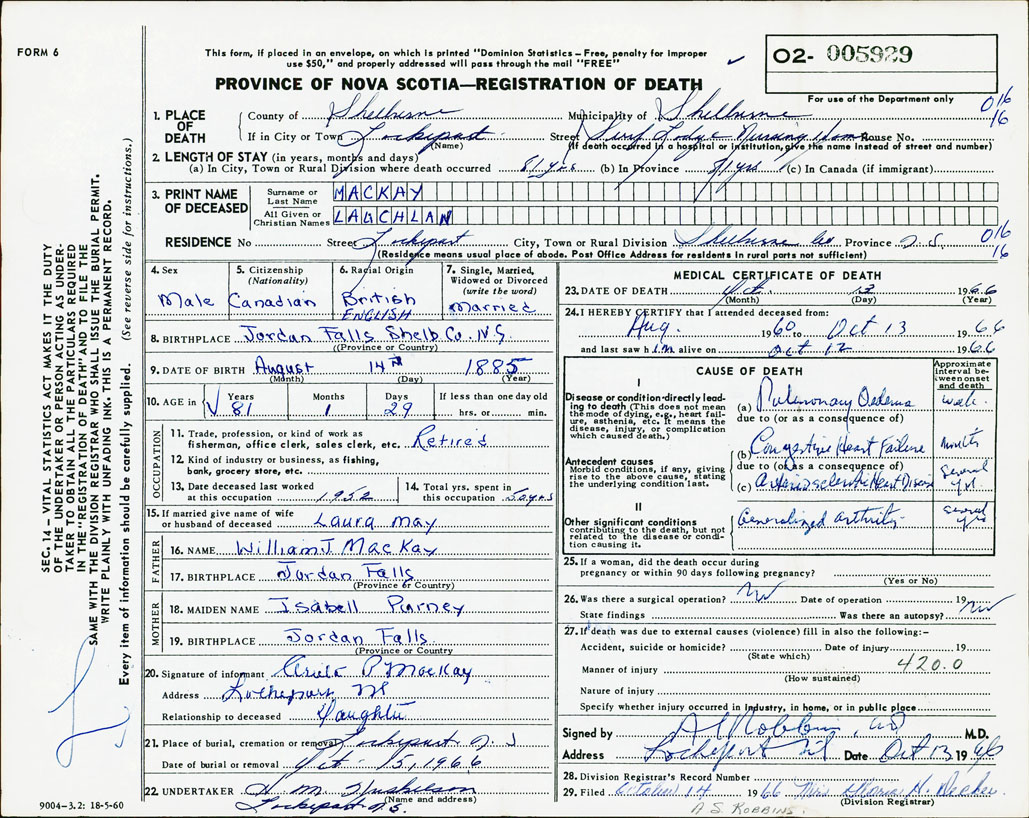 FORM 6
This form, if placed in an envelope, on which is printed "Dominion Statistics – Free, penalty for improper
use $50," and properly addressed will pass through the mail "FREE"
O2- 005929
PROVINCE OF NOVA SCOTIA—REGISTRATION OF DEATH
For use of the Department only
016
16
1. PLACE OF DEATH County of Shelburne Municipality of Shelburne
If in City or Town Lockeport Street Surf Lodge Nursing Home House No.
(Name) (If death occurred in a hospital or institution, give the name instead of street and number)
2. LENGTH OF STAY (in years, months and days)
(a) In City, Town or Rural Division where death occurred 81 yrs (b) In Province 81 yrs (c) In Canada (if immigrant)
3. PRINT NAME OF DECEASED Surname or Last Name MACKAY
All Given or Christian Names LAUCHLAN
RESIDENCE No Street Lockeport City, Town or Rural Division Shelburne Co. Province N.S. 016
16
(Residence means usual place of abode. Post Office Address for residents in rural parts not sufficient)
4. Sex Male
5. Citizenship (Nationality) Canadian
6. Racial Origin British ENGLISH
7. Single, Married, Widowed or Divorced (write the word) Married
8. BIRTHPLACE Jordan Falls Shelb Co. N.S.
(Province or Country)
9. DATE OF BIRTH August 14TH 1885
(Month) (Day) (Year)
10. AGE in Years 81 Months 1 Days 29 If less than one day old hrs. or min.
OCCUPATION
11. Trade, profession, or kind of work as
fisherman, office clerk, sales clerk, etc. Retired
12. Kind of industry or business, as fishing,
bank, grocery store, etc.
13. Date deceased last worked
at this occupation 1952
14. Total yrs. spent in
this occupation 50 yrs
15. If married give name of wife
or husband of deceased Laura May
FATHER
16. NAME William J. MacKay
17. BIRTHPLACE Jordan Falls
(Province or Country)
MOTHER
18. MAIDEN NAME Isabell Purney
19. BIRTHPLACE Jordan Falls
(Province or Country)
20. Signature of informant P MacKay
Address Lockeport NS
Relationship to deceased Daughter
21. Place of burial, cremation or removal Lockeport N.S
Date of burial or removal Oct - 15, 1966
22. UNDERTAKER H. M. Huskilson
(Name and address)
Lockeport N.S.
MEDICAL CERTIFICATE OF DEATH
23. DATE OF DEATH Oct 13 1966
(Month) (Day) (Year)
24. I HEREBY CERTIFY that I attended deceased from:
Aug. 1960 to Oct 13 1966
and last saw h im alive on Oct 12 1966
CAUSE OF DEATH
Approximate interval between onset and death
I
Disease or condition directly leading to death (This does not mean the mode of dying, e.g., heart failure, asthenia, etc. It means the disease, injury, or complication which caused death.)
(a) Pulmonary Oedema week
due to (or as a consequence of)
Antecedent causes
Morbid conditions, if any, giving rise to the above cause, stating the underlying condition last.
(b) Congestive Heart Failure months
due to (or as a consequence of)
(c) Arteriosclerotic Heart Disease Several yrs.
II
Other significant conditions contributing to the death, but not related to the disease or condition causing it.
Generalized arthritis several yrs
25. If a woman, did the death occur during
pregnancy or within 90 days following pregnancy?
(Yes or No)
26. Was there a surgical operation? No Date of operation 19
State findings Was there an autopsy? No
27. If death was due to external causes (violence) fill in also the following:–
Accident, suicide or homicide? Date of injury 19
(State which)
Manner of injury 420.0
(How sustained)
Nature of injury
Specify whether injury occurred in industry, in home, or in public place
Signed by A S Robbins, M.D.
Address Lockeport NS Date Oct 13 1966
28. Division Registrar's Record Number
29. Filed October 14 1966 Mrs Thomas H. Decker
(Division Registrar)
A S. ROBBINS.
SEC. 14 – VITAL STATISTICS ACT MAKES IT THE DUTY
OF THE UNDERTAKER OR PERSON ACTING AS UNDER-
TAKER TO OBTAIN ALL THE PARTICULARS REQUIRED
IN THE "REGISTRATION OF DEATH" AND TO FILE THE
SAME WITH THE DIVISION REGISTRAR WHO SHALL ISSUE THE BURIAL PERMIT.
WRITE PLAINLY WITH UNFADING INK. THIS IS A PERMANENT RECORD.
Every item of information should be carefully supplied. (See reverse side for instructions.)
9004–3.2: 18-5-60